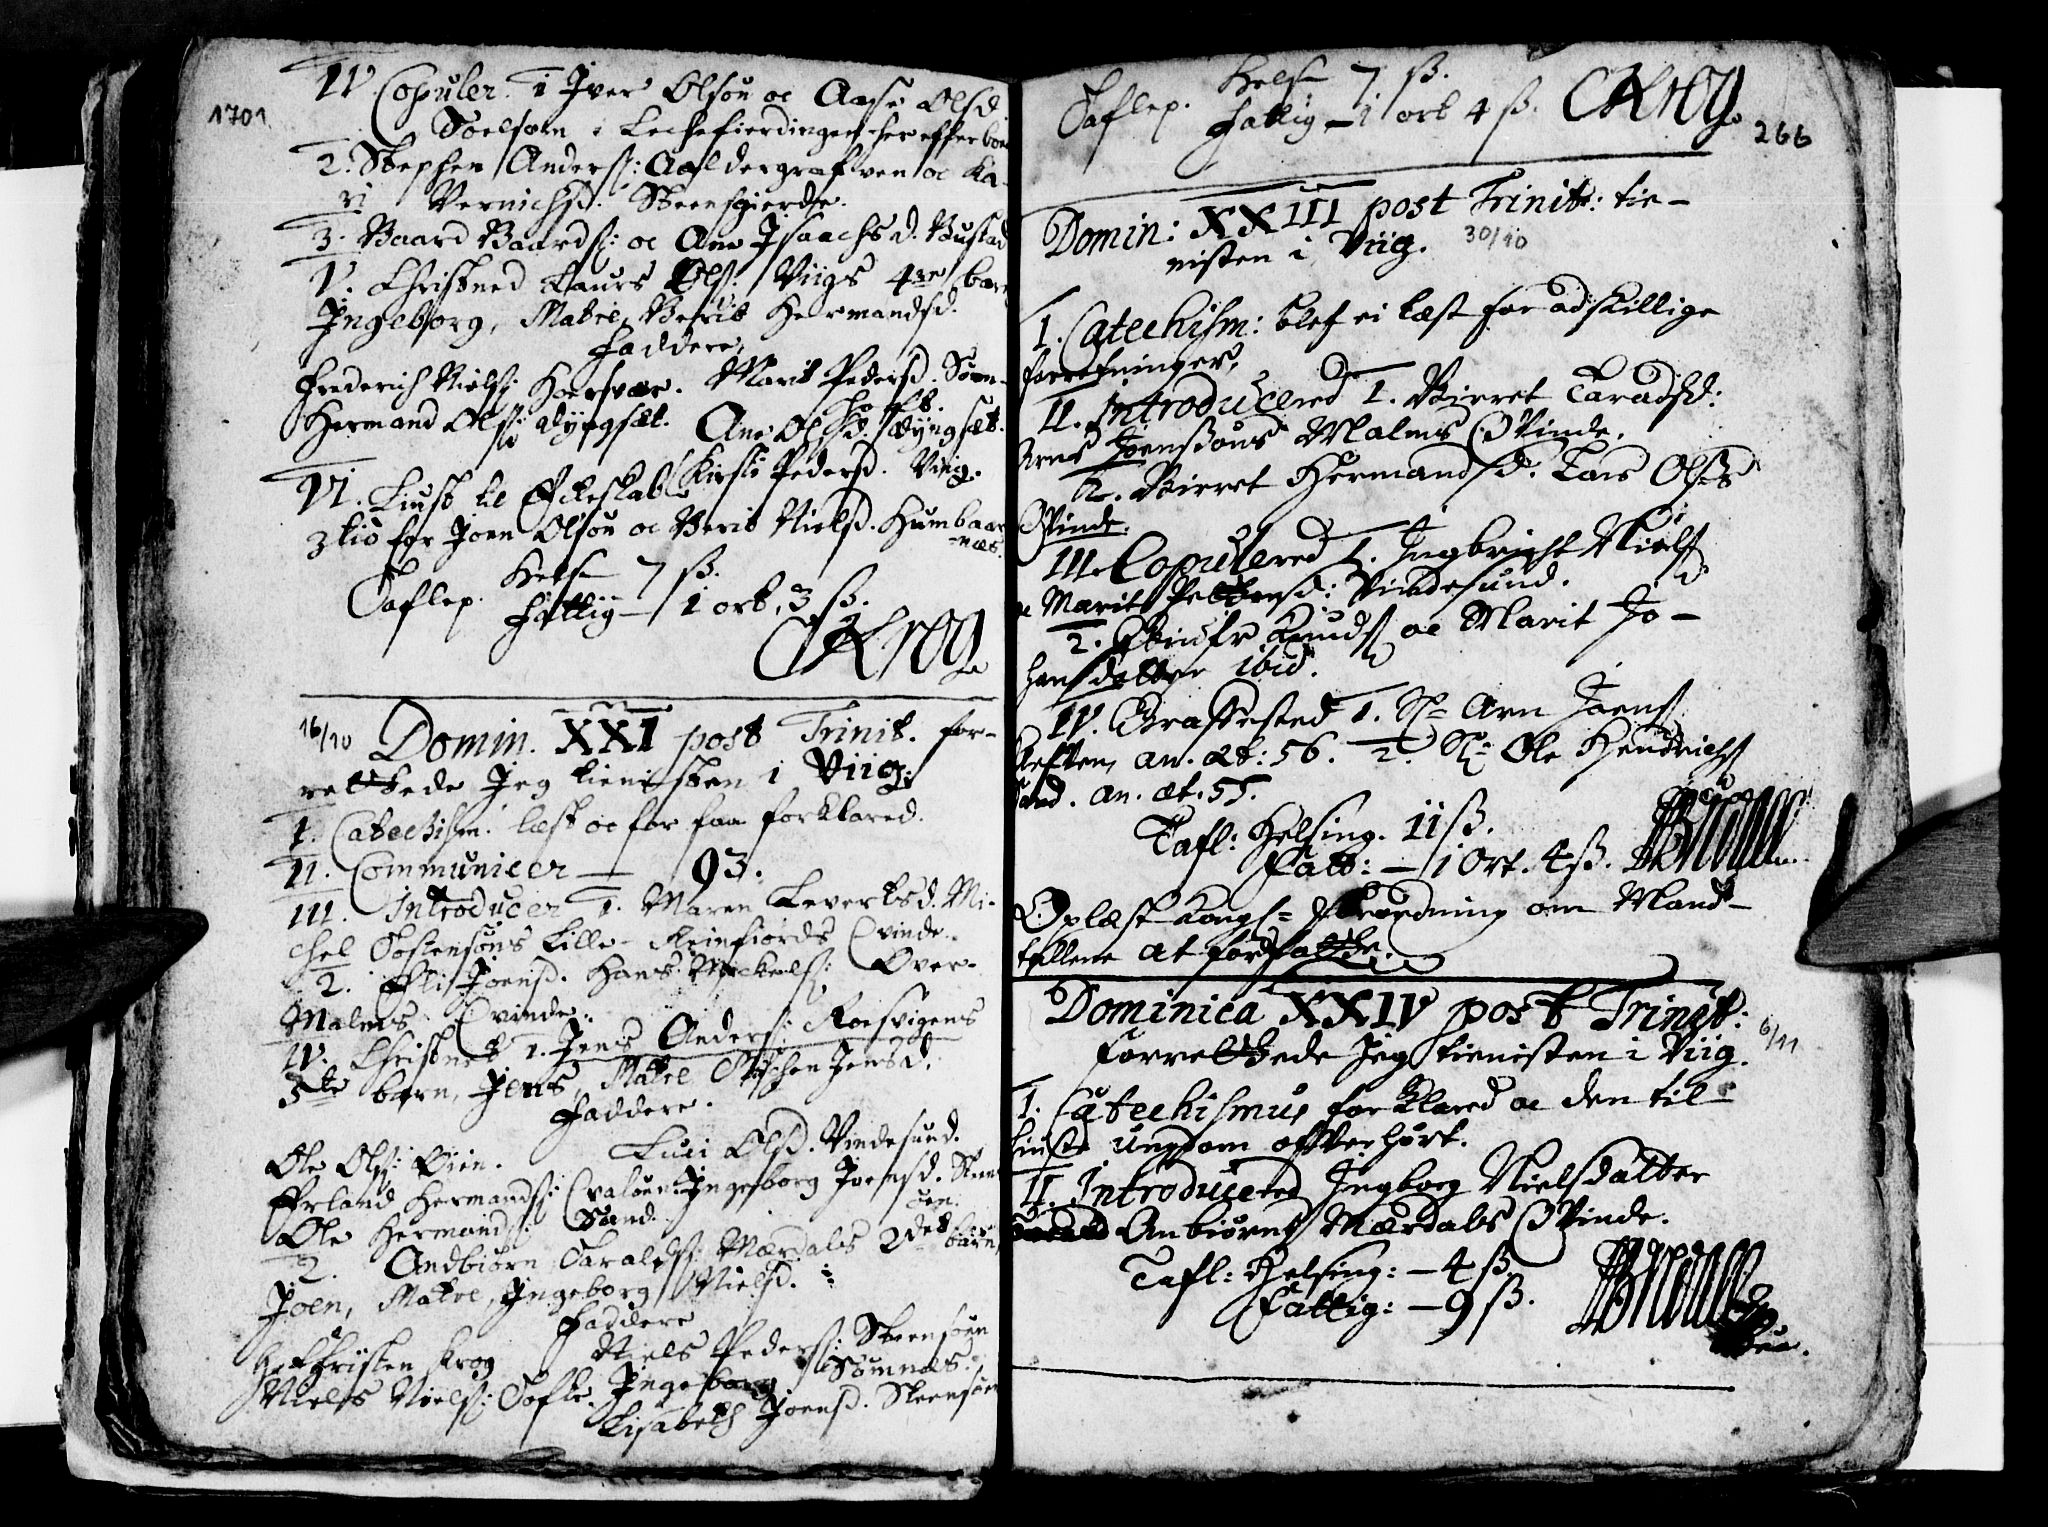 1701
IV. Copuler. 1 Iver Olsøn oc Aase Olsd.
Soelsøen i Lechefierdingen her effter boe
2. Stephen Anders: Aaldergrafven oc Ka-
ri Vernichsd. Steensgierde.
3. Baard Baards: oc Ane Isaachsd. Bustad
V. Christned Laurs Ols. Viigs 4de barn
Ingeborg, Matre, Berit Hermandsd.
Faddere,
Frederich Niels: Horsvær. Marit Pedersd. Søm-
Hermand Ols: Lyngsæt. Ane Olsd. Lyngset.
Kirsti Pedersd. Viig.
VI. Liust til Ecteskab
3die for Joen Olsøn oc Berit Nielsd. Humbaar
-næs.
Taflep. Hels 7 ß.
Fattig — 1 ort, 3 ß.
CKrog
16/10 Domin. XXI post Trinit. for-
rettede Jeg tienisten i Viig:
I. Catechism: læst oc for faa forklared.
II. Communicer — 93.
III. Introducer 1. Maren Levertsd. Mi-
chel Tostensøns Lille-Reinfiords Qvinde.
2. Elli Joensd. Hans Michels: Over-
Malms Qvinde.
IV. Christnet 1. Jens Anders: Roesvigens
5te barn, Jens, Matre Maschen Jensd.
Faddere.
Ole Ols: Øien. Luci Olsd. Vindesund.
Erland Hermands: Qvaløen. Ingeborg Joensd. Steen
Ole Hermands: Sand. -søen.
2. Andbiørn Taralds: Mærdals 2det barn
Joen, Matre, Ingeborg Nielsd.
Faddere
Hr Christen Krog Niels Peders: Steensøen
Niels Niels: Tofte. Ingeborg Sømnæs.
Lisabeth Joensd. Steensøen
Taflep. Hels 7 ß.
Fattig — 1 ort 4 ß. CKrog
266
Domin: XXIII post Trinit: tie-
nisten i Viig. 30/10
I. Catechism: blef ei læst for adskillige
forretninger,
II. Introducered 1. Birret Taradsd:
Arns Joensøns Malms Qvinde.
2. Birret Hermandsd. Lars Ols
Qvinde.
III. Copulered 1. Ingbricht Niels
oc Marit Pettersd: Vindesund.
2. Knuds oc Marit Jo-
hansdatter ibid.
IV. Graffested 1. Sl. Arn Joens
an. æt: 56. 2. Sl: Ole Hendrichs
Sand. an. æt. 55.
Tafl: Helsing. 11 ß.
Fatt: — 1 Ort. 4 ß.
Oplæst Kongs= forordning om Mand-
tallene at forfatte.
Dominica XXIV post Trinit:
forrettede Jeg tienisten i Viig. 6/11
I. Catechismus forklared oc den til-
liuste ungdom offverhørt.
II. Introducered Ingborg Nielsdatter
Anbiørns Mærdals Qvinde.
Tafl: Helsing: — 4 ß
Fattig: — 9 ß.